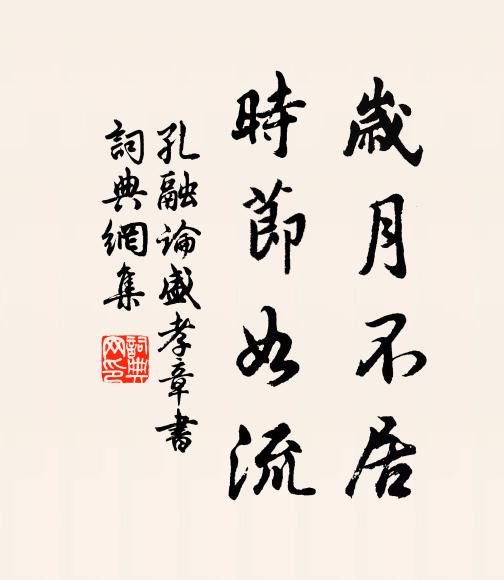 歲月不居
時節如流
孔融論盛孝章書
詞典網集
詞典網印